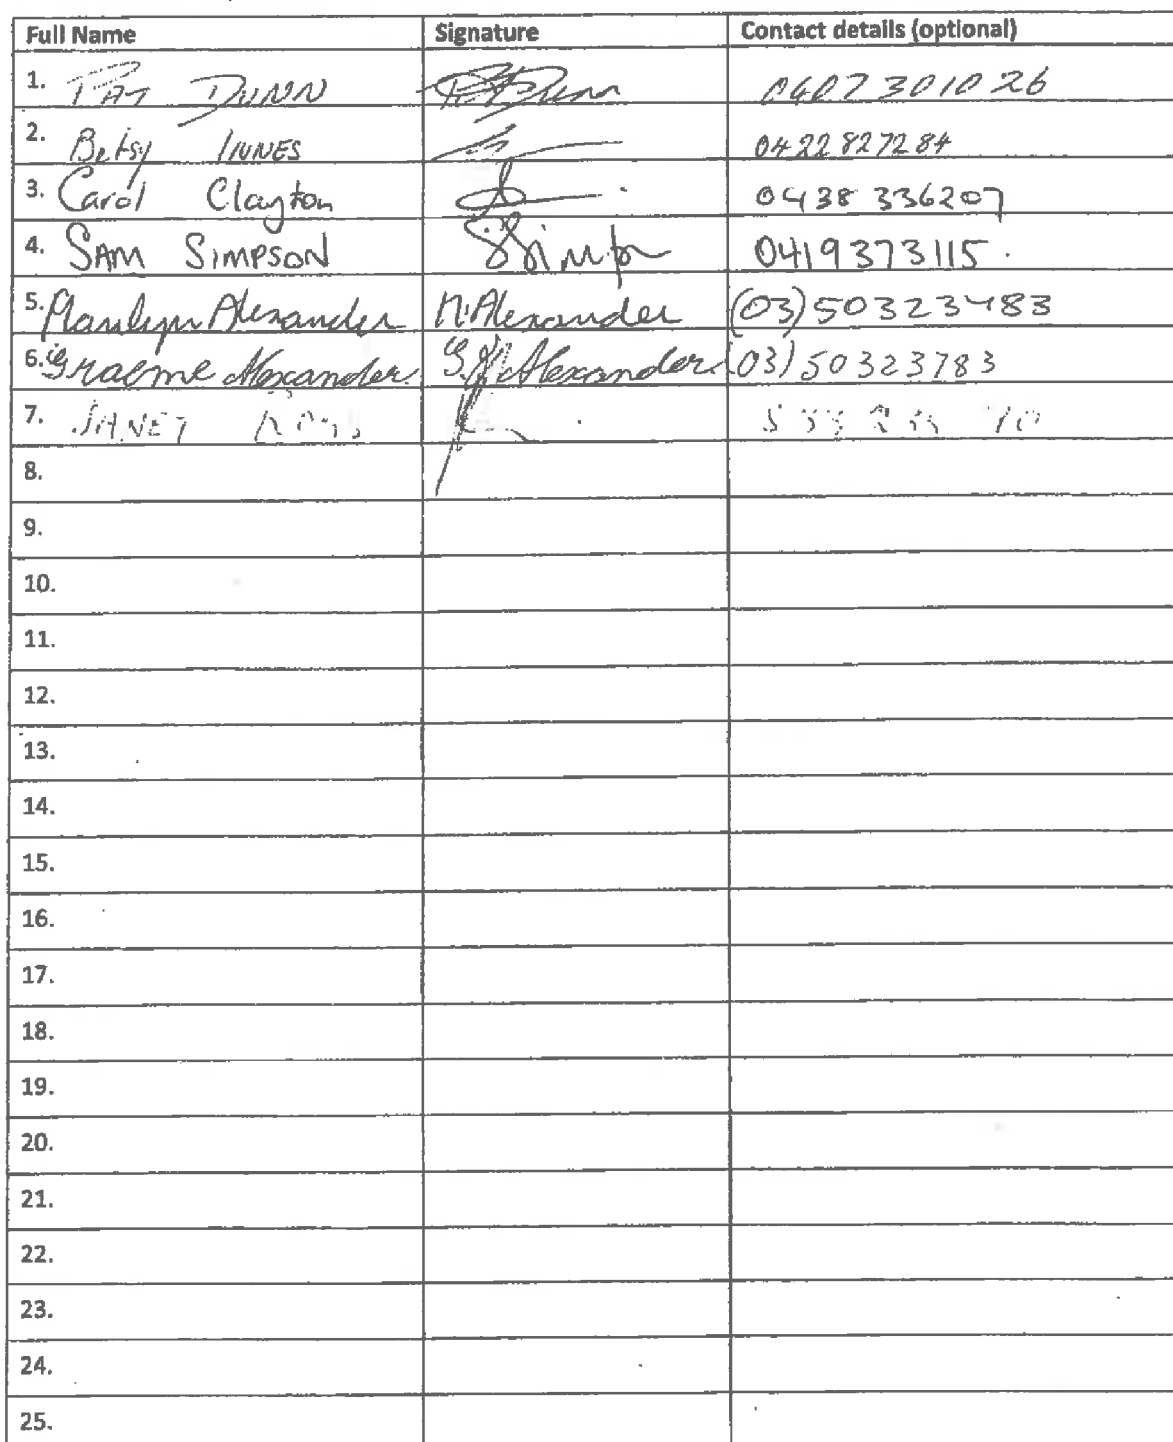 Full Name Signature Contact details (optional)
1. PAT DUNN P Dunn 0407301026
2. Betsy INNES 0422827284
3. Carol Clayton 0438 336207
4. SAM SIMPSON 0419373115.
5. Marilyn Alexander M. Alexander (03)50323783
6. Graeme Alexander. Alexander (03)50323783
7. JANET
8.
9.
10.
11.
12.
13.
14.
15.
16.
17.
18.
19.
20.
21.
22.
23.
24.
25.